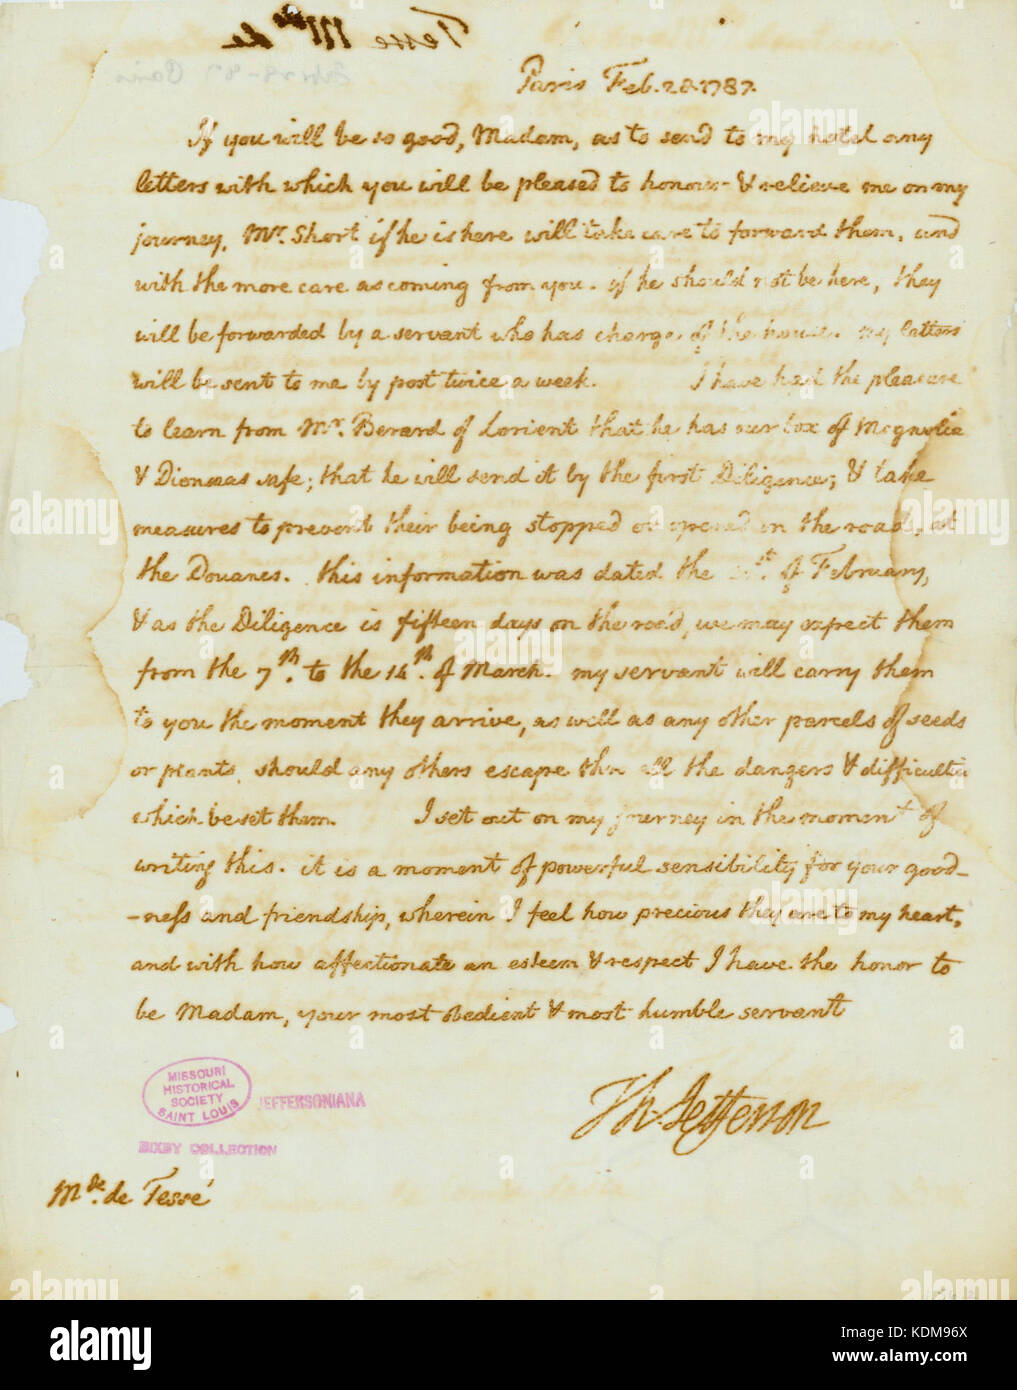 Tesse Mde de
Feb 28-87 Paris
Paris Feb. 28. 1787.
If you will be so good, Madam, as to send to my hotel any
letters with which you will be pleased to honour & relieve me on my
journey, Mr. Short if he is here will take care to forward them, and
with the more care as coming from you. if he should not be here, they
will be forwarded by a servant who has charge of the house. my letters
will be sent to me by post twice a week. I have had the pleasure
to learn from Mr. Berard of Lorient that he has our box of Magnolia
& Dionaeas safe; that he will send it by the first Diligence; & take
measures to prevent their being stopped or opened on the roads, at
the Douanes. this information was dated the st. of February,
& as the Diligence is fifteen days on the road, we may expect them
from the 7th. to the 14th. of March. my servant will carry them
to you the moment they arrive, as well as any other parcels of seeds
or plants, should any others escape thro all the dangers & difficulties
which beset them. I set out on my journey in the moment of
writing this. it is a moment of powerful sensibility for your good-
-ness and friendship, wherein I feel how precious they are to my heart,
and with how affectionate an esteem & respect I have the honor to
be Madam, your most obedient & most humble servant
Th: Jefferson
MISSOURI
HISTORICAL
SOCIETY
SAINT LOUIS
JEFFERSONIANA
BIXBY COLLECTION
Mde. de Tessé
alamy
Image ID: KDM96X
www.alamy.com